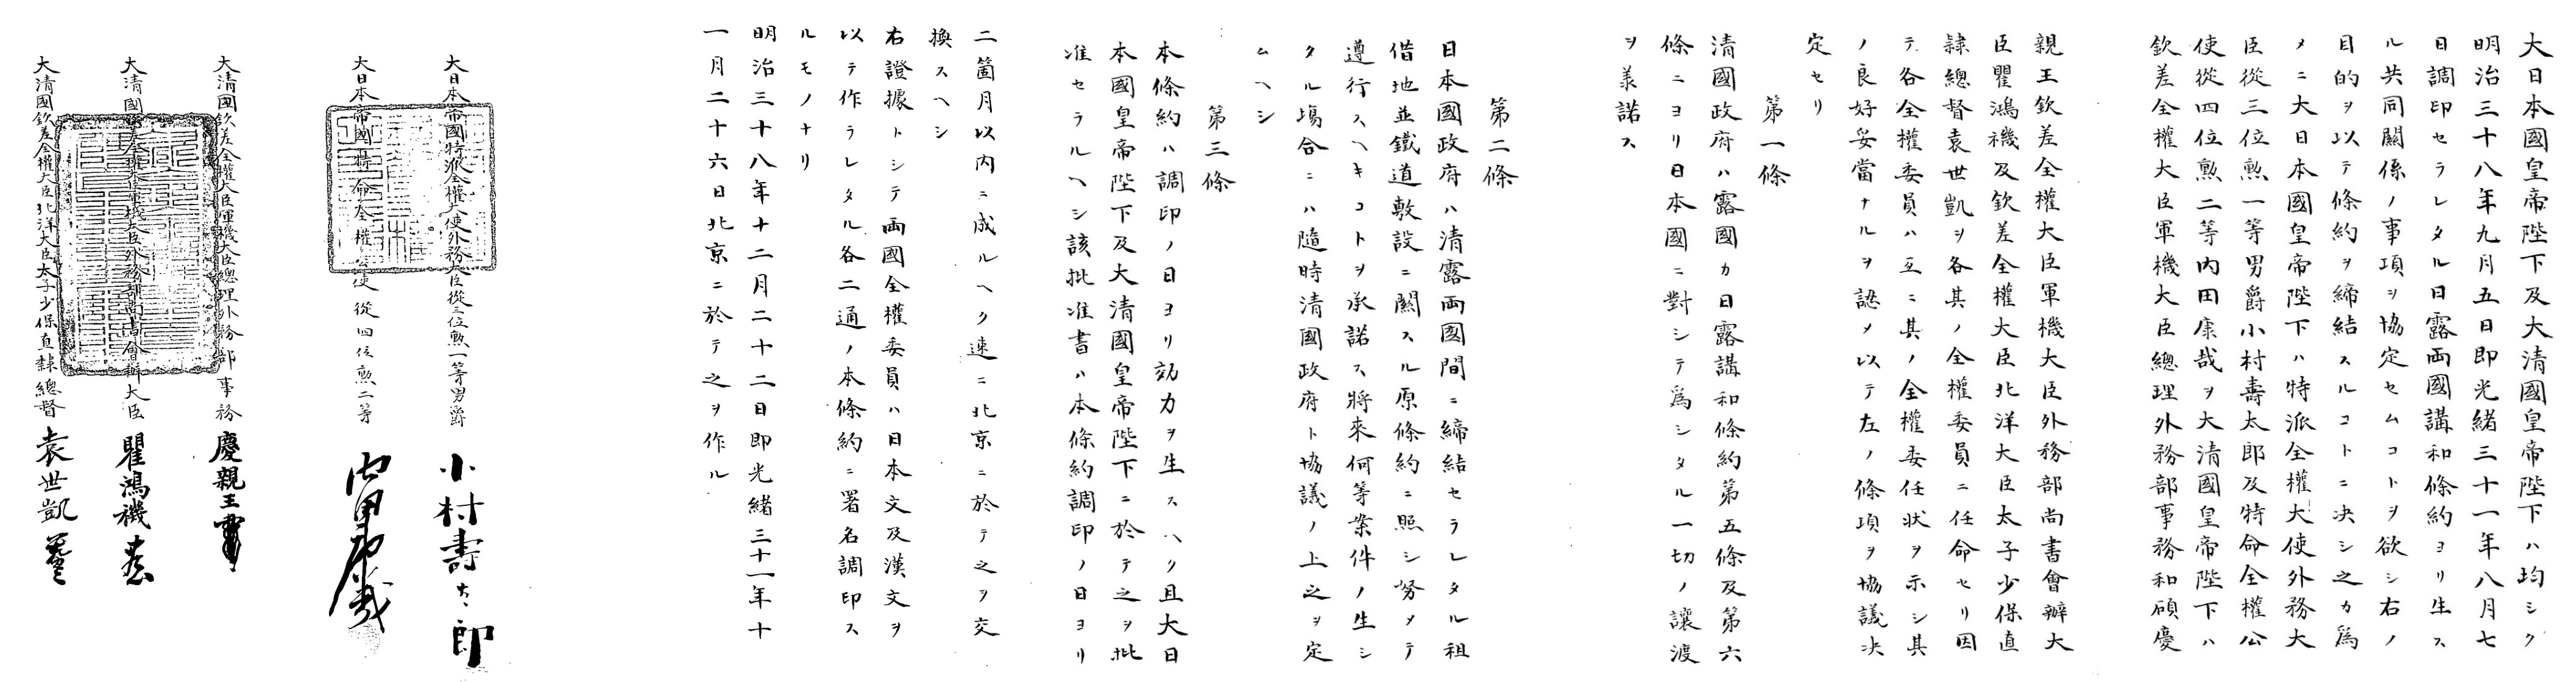 大日本國皇帝陛下及大清國皇帝陛下ハ均シク
明治三十八年九月五日即光緒三十一年八月七
日調印セラレタル日露両國講和條約ヨリ生ス
ル共同關係ノ事項ヲ協定セムコトヲ欲シ右ノ
目的ヲ以テ條約ヲ締結スルコトニ决シ之カ為
メニ大日本國皇帝陛下ハ特派全權大使外務大
臣從三位勲一等男爵小村壽太郎及特命全權公
使從四位勲二等内田康哉ヲ大清國皇帝陛下ハ
欽差全權大臣軍機大臣總理外務部事務和碩慶
親王欽差全權大臣軍機大臣外務部尚書會辦大
臣瞿鴻禨及欽差全權大臣北洋大臣太子少保直
隷總督袁世凱ヲ各其ノ全權委員ニ任命セリ因
テ各全權委員ハ互ニ其ノ全權委任状ヲ示シ其
ノ良好妥當ナルヲ認メ以テ左ノ條項ヲ協議决
定セリ
第一條
清國政府ハ露國カ日露講和條約第五條及第六
條ニヨリ日本國ニ對シテ為シタル一切ノ讓渡
ヲ承諾ス
第二條
日本國政府ハ清露両國間ニ締結セラレタル租
借地並鐵道敷設ニ關スル原條約ニ照シ努メテ
遵行スヘキコトヲ承諾ス將來何等案件ノ生シ
タル塲合ニハ隨時清國政府ト協議ノ上之ヲ定
ムヘシ
第三條
本條約ハ調印ノ日ヨリ効力ヲ生スヘク且大日
本國皇帝陛下及大清國皇帝陛下ニ於テ之ヲ批
准セラルヘシ該批准書ハ本條約調印ノ日ヨリ
二箇月以内ニ成ルヘク速ニ北京ニ於テ之ヲ交
換スヘシ
右證據トシテ両國全權委員ハ日本文及漢文ヲ
以テ作ラレタル各二通ノ本條約ニ署名調印ス
ルモノナリ
明治三十八年十二月二十二日即光緒三十一年十
一月二十六日北京ニ於テ之ヲ作ル
大日本帝國特派全權大使外務大臣從三位勲一等男爵 小村壽太郎
大日本帝國特命全權公使從四位勲二等 内田康哉
大清國欽差全權大臣軍機大臣總理外務部事務 慶親王
大清國欽差全權大臣軍機大臣外務部尚書會辦大臣 瞿鴻禨
大清國欽差全權大臣北洋大臣太子少保直隷總督 袁世凱